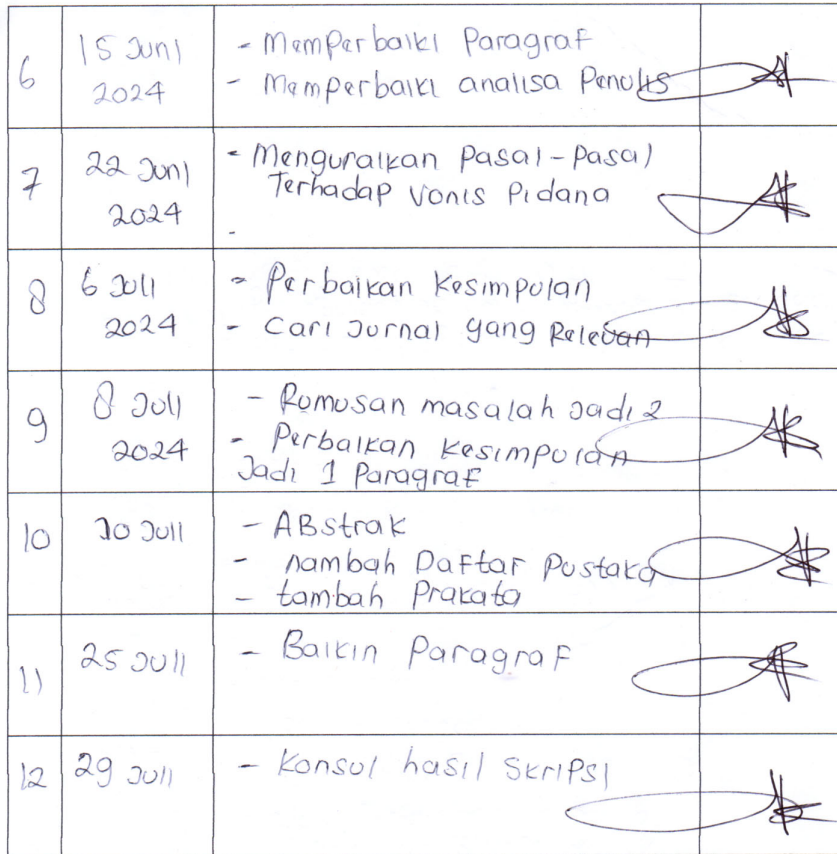 6 15 Juni 2024 - Memperbaiki Paragraf
- Memperbaiki analisa Penulis
7 22 Juni 2024 - Menguraikan Pasal-Pasal
Terhadap Vonis Pidana
-
8 6 Juli 2024 - Perbaikan Kesimpulan
- Cari Jurnal yang Relevan
9 8 Juli 2024 - Rumusan masalah Jadi 2
- Perbaikan Kesimpulan
Jadi 1 Paragraf
10 10 Juli - ABstrak
- nambah Daftar Pustaka
- tambah Prakata
11 25 Juli - Baikin Paragraf
12 29 Juli - Konsul hasil Skripsi